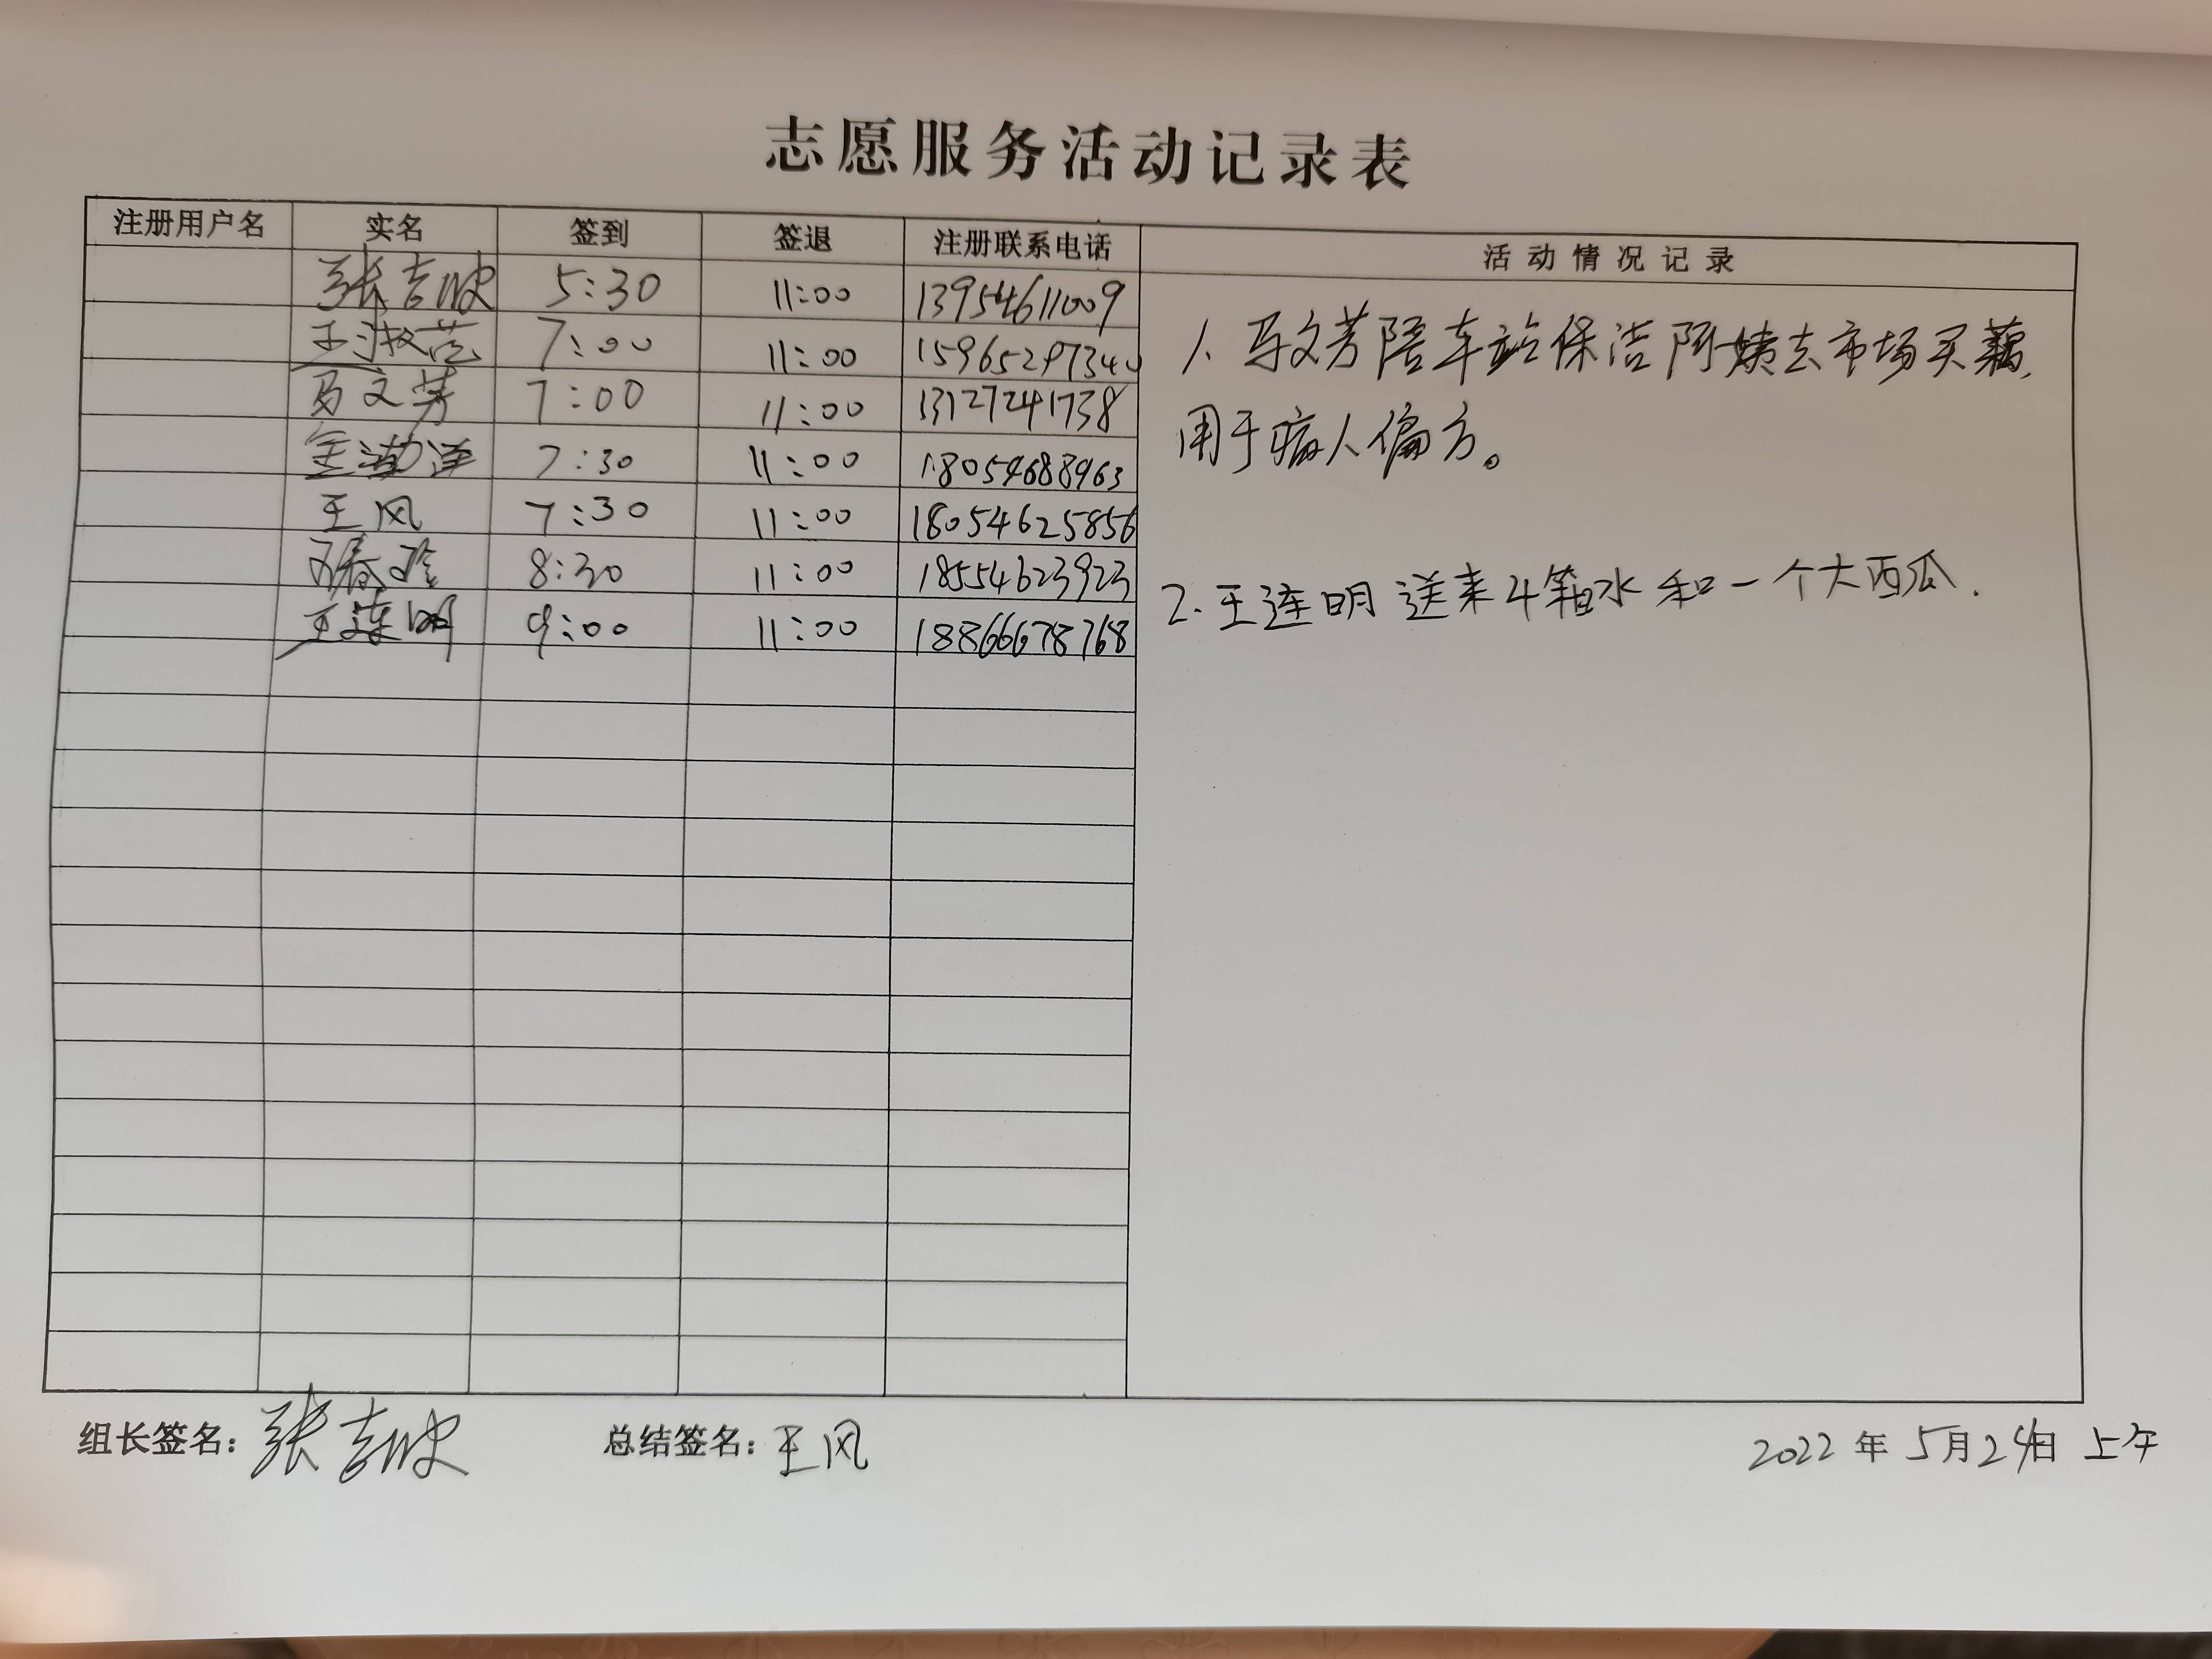 志愿服务活动记录表
注册用户名 实名 签到 签退 注册联系电话 活动情况记录
5:30 11:00 13954611009
王淑芸 7:00 11:00 15965297340
马文芳 7:00 11:00 13127241738
7:30 11:00 18054688963
王风 7:30 11:00 18054625856
8:30 11:00 18554623923
王连明 9:00 11:00 18866678768
1. 马文芳陪车站保洁阿姨去市场买藕,
用于病人偏方。
2. 王连明送来4箱水和一个大西瓜.
组长签名: 总结签名: 王风 2022年5月24日 上午